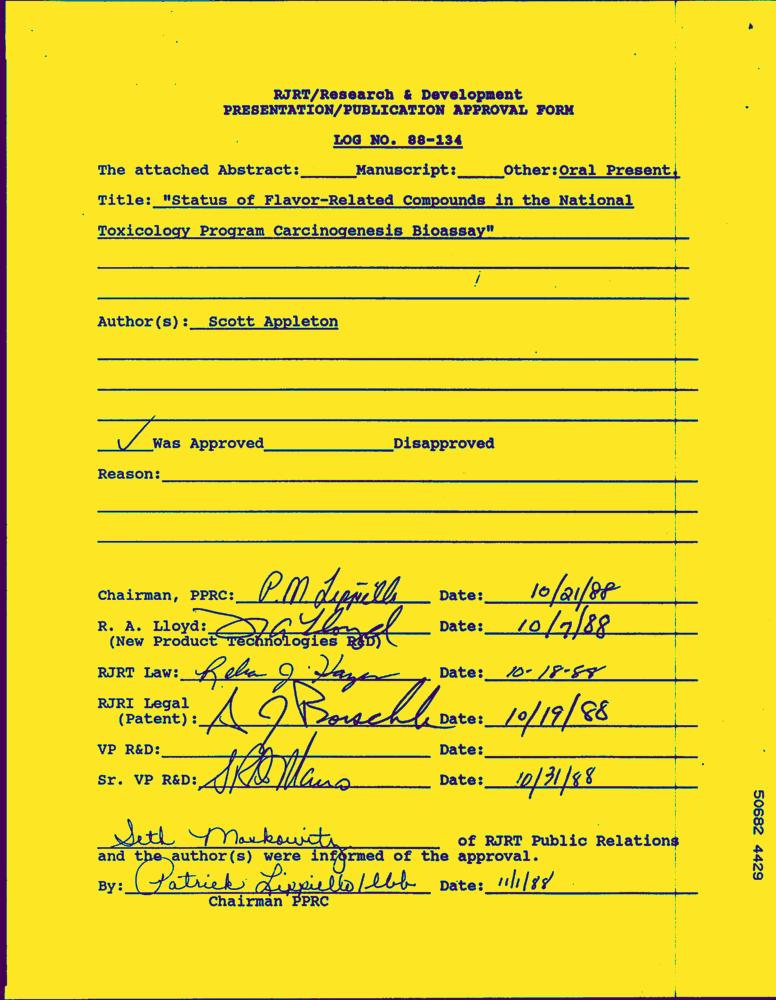 RJRT/Research & Development
PRESENTATION/PUBLICATION APPROVAL FORM
LOG NO. 88-134
The attached Abstract:______Manuscript:_____Other:Oral Present.
Title: "Status of Flavor-Related Compounds in the National
Toxicology Program Carcinogenesis Bioassay"
Author(s): Scott Appleton
✓ Was Approved____________Disapproved
Reason:
Chairman, PPRC: P.M Lippiello Date: 10/21/88
R. A. Lloyd: R A Lloyd Date: 10/7/88
(New Product Technologies R&D)
RJRT Law: J. Date: 10-18-88
RJRI Legal
(Patent): Date: 10/19/88
VP R&D: Date:
Sr. VP R&D: Date: 10/31/88
Seth Moskowitz of RJRT Public Relations
and the author(s) were informed of the approval.
By: Patrick Lippiello/ Date: 11/1/88
Chairman PPRC
50682 4429